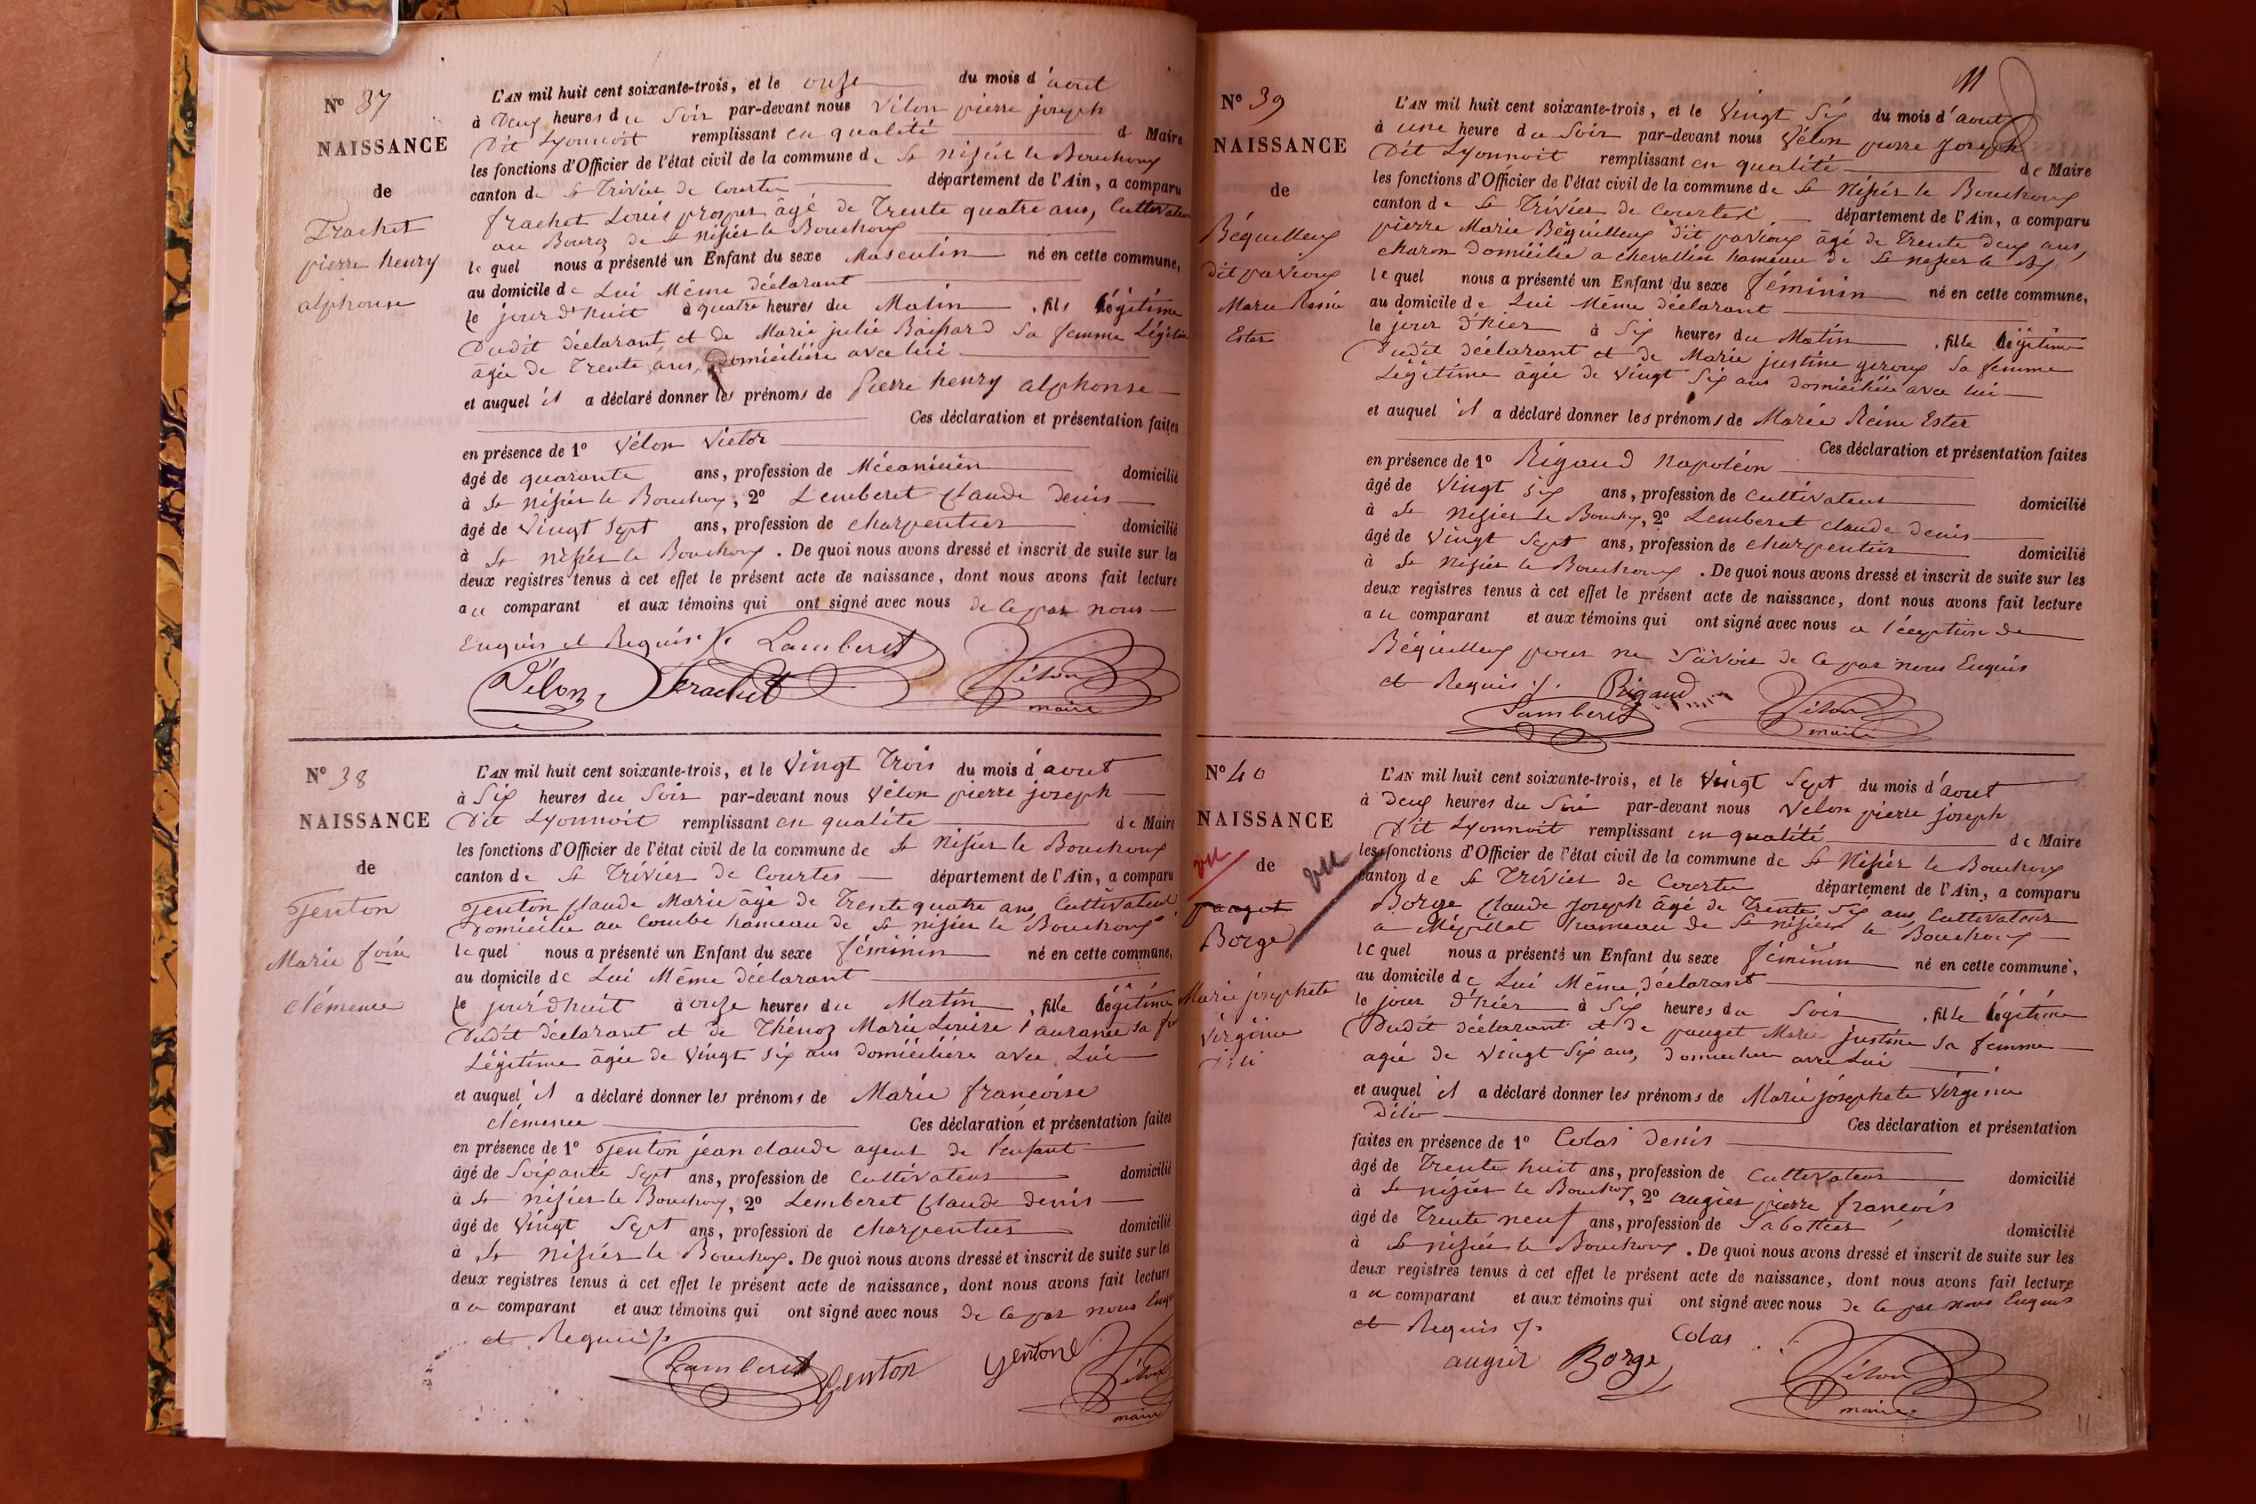 N° 37
NAISSANCE
de
Frachet
pierre henry
alphonse
L'AN mil huit cent soixante-trois, et le onze du mois d'aout
à Deux heures du Soir par-devant nous Vélon pierre joseph
Dit Lyonnoit remplissant en qualité de Maire
les fonctions d'Officier de l'état civil de la commune de St Nisier le Bouchoux
canton de St Trivier de Courtes département de l'Ain, a comparu
frachet Louis prosper âgé de Trente quatre ans, Cultivateur
au Bourg de St Nisier le Bouchoux
lequel nous a présenté un Enfant du sexe Masculin né en cette commune,
au domicile de Lui Même déclarant
le jour d'huit à quatre heures du Matin, fils légitime
Dudit déclarant et de Marie julie Baissard Sa femme Légitime
âgée de Trente ans, Domiciliére avec lui
et auquel il a déclaré donner les prénoms de Pierre henry alphonse
Ces déclaration et présentation faites
en présence de 1° Vélon Victor
âgé de quarante ans, profession de Mécanicien domicilié
à St Nisier le Bouchoux, 2° Lemberet Claude denis
âgé de Vingt Sept ans, profession de charpentier domicilié
à St Nisier le Bouchoux. De quoi nous avons dressé et inscrit de suite sur les
deux registres tenus à cet effet le présent acte de naissance, dont nous avons fait lecture
au comparant et aux témoins qui ont signé avec nous de ce par nous
Enquis et Requis ./.
Lamberet
Vélon frachet Vélon
maire
N° 38
NAISSANCE
de
Genton
Marie foise
clémence
L'AN mil huit cent soixante-trois, et le Vingt Trois du mois d'aout
à Six heures du Soir par-devant nous Vélon pierre joseph
Dit Lyonnoit remplissant en qualité de Maire
les fonctions d'Officier de l'état civil de la commune de St Nisier le Bouchoux
canton de St Trivier de Courtes département de l'Ain, a comparu
Genton Claude Marie âgé de Trente quatre ans Cultivateur
Domicilié au Combe hameau de St nisier le Bouchoux
lequel nous a présenté un Enfant du sexe féminin né en cette commune,
au domicile de Lui Même déclarant
le jour d'huit à onze heures du Matin, fille légitime
Dudit déclarant et de Thénoz Marie Louise Laurance sa fe
Légitime âgée de Vingt Six ans domiciliére avec Lui
et auquel il a déclaré donner les prénoms de Marie françoise
clémence Ces déclaration et présentation faites
en présence de 1° Genton jean claude ayeul de l'enfant
âgé de Soixante Sept ans, profession de Cultivateur domicilié
à St nisier le Bouchoux, 2° Lemberet Claude denis
âgé de Vingt Sept ans, profession de charpentier domicilié
à St Nisier le Bouchoux. De quoi nous avons dressé et inscrit de suite sur les
deux registres tenus à cet effet le présent acte de naissance, dont nous avons fait lecture
au comparant et aux témoins qui ont signé avec nous de ce par nous Enquis
et Requis ./.
Lamberet Genton genton Vélon
maire
11
N° 39
NAISSANCE
de
Béquilleux
dit pavioux
Marie Reine
Ester
L'AN mil huit cent soixante-trois, et le Vingt Six du mois d'aout
à une heure du Soir par-devant nous Vélon pierre Joseph
Dit Lyonnoit remplissant en qualité de Maire
les fonctions d'Officier de l'état civil de la commune de St Nisier le Bouchoux
canton de St Trivier de Courtes département de l'Ain, a comparu
pierre Marie Béquilleux dit pavioux âgé de Trente deux ans,
charon domicilié a hameau de St nisier le Bx
lequel nous a présenté un Enfant du sexe féminin né en cette commune,
au domicile de Lui Même déclarant
le jour d'hier à Six heures du Matin, fille légitime
Dudit déclarant et de Marie justine giroux Sa femme
Légitime âgée de Vingt Six ans domiciliée avec lui
et auquel il a déclaré donner les prénoms de Marie Reine Ester
Ces déclaration et présentation faites
en présence de 1° Rigaud Napoléon
âgé de Vingt six ans, profession de cultivateur domicilié
à St Nisier le Bouchoux, 2° Lemberet claude denis
âgé de Vingt Sept ans, profession de charpentier domicilié
à St Nisier le Bouchoux. De quoi nous avons dressé et inscrit de suite sur les
deux registres tenus à cet effet le présent acte de naissance, dont nous avons fait lecture
au comparant et aux témoins qui ont signé avec nous a l'éception de
Béquilleux pour ne Savoir de ce par nous Enquis
et Requis ./. Rigaud
Lamberet Vélon
maire
N° 40
NAISSANCE
vu
de
vu
pauget
Borge
Marie josephete
Virginie
L'AN mil huit cent soixante-trois, et le Vingt Sept du mois d'aout
à Deux heures du Soir par-devant nous Velon pierre joseph
Dit Lyonnoit remplissant en qualité de Maire
les fonctions d'Officier de l'état civil de la commune de St Nisier le Bouchoux
canton de St Trivier de Courtes département de l'Ain, a comparu
Borge Claude joseph âgé de Trente Six ans, Cultivateur
a Mépillat hameau de St nisier le Bouchoux
lequel nous a présenté un Enfant du sexe féminin né en cette commune,
au domicile de Lui Même déclarant
le jour d'hier à Six heures du Soir, fille légitime
Dudit déclarant et de pauget Marie justine Sa femme
agée de Vingt Six ans, domiciliée avec Lui
et auquel il a déclaré donner les prénoms de Marie josephete Virginie
Ces déclaration et présentation
faites en présence de 1° Colas denis
âgé de Trente huit ans, profession de Cultivateur domicilié
à St nisier le Bouchoux, 2° augier pierre françois
âgé de Trente neuf ans, profession de Sabottier domicilié
à St nisier le Bouchoux. De quoi nous avons dressé et inscrit de suite sur les
deux registres tenus à cet effet le présent acte de naissance, dont nous avons fait lecture
au comparant et aux témoins qui ont signé avec nous de ce par nous Enquis
et Requis ./. Colas
augier Borge Vélon
maire
11